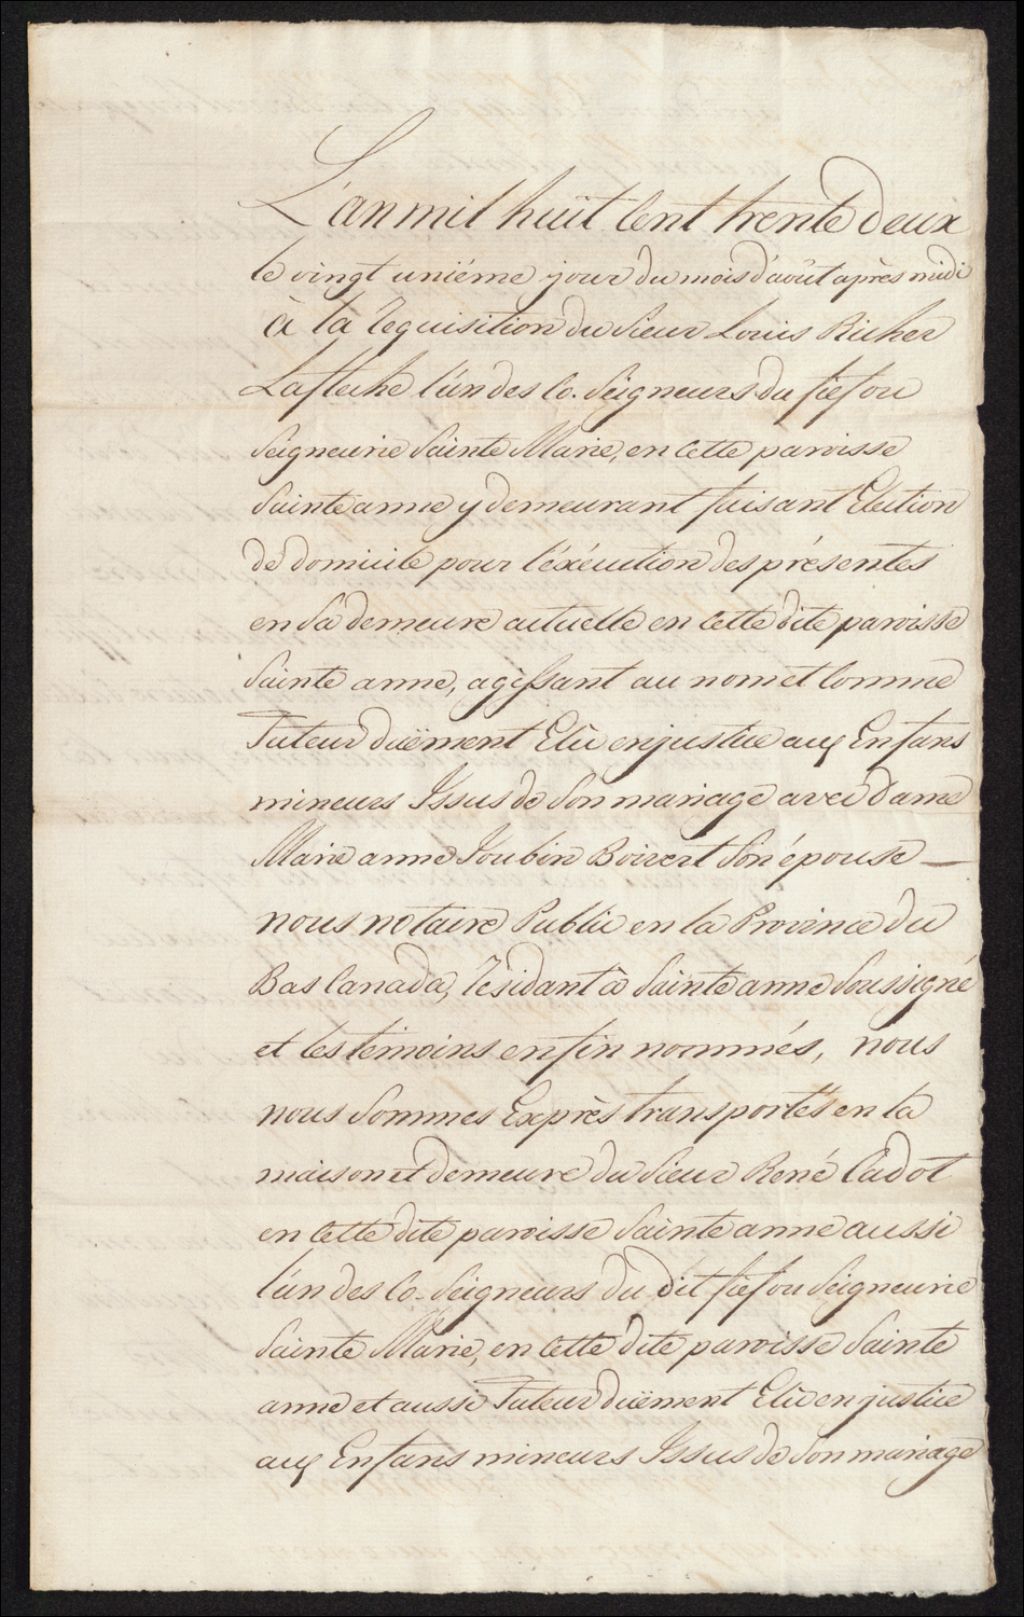 L'an mil huit Cent trente deux
le vingt uniéme jour du mois d'août après midi
à la Requisition du Sieur Louis Richer
Lafleche l'un des Co-Seigneurs du fief ou
Seigneurie Sainte Marie, en cette paroisse
Sainte anne y demeurant faisant Election
de domicile pour l'éxécution des présentes
en Sa demeure actuelle en Cette dite paroisse
Sainte anne, agissant au nom et Comme
Tuteur duëment Elû en justice aux Enfans
mineurs Issus de Son mariage avec Dame
Marie anne Joubin Boisvert Son épouse —
nous notaire Public en la Province du
Bas Canada, Résidant à Sainte anne Soussigné
et les témoins en fin nommés, nous
nous Sommes Exprès transportés en la
maison et demeure du Sieur René Cadot
en Cette dite paroisse Sainte anne aussi
l'un des Co-Seigneurs du dit fief ou Seigneurie
Sainte Marie, en Cette dite paroisse Sainte
anne et aussi Tuteur duëment Elû en justice
aux Enfans mineurs Issus de Son mariage